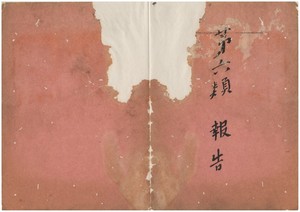 第六類 報告